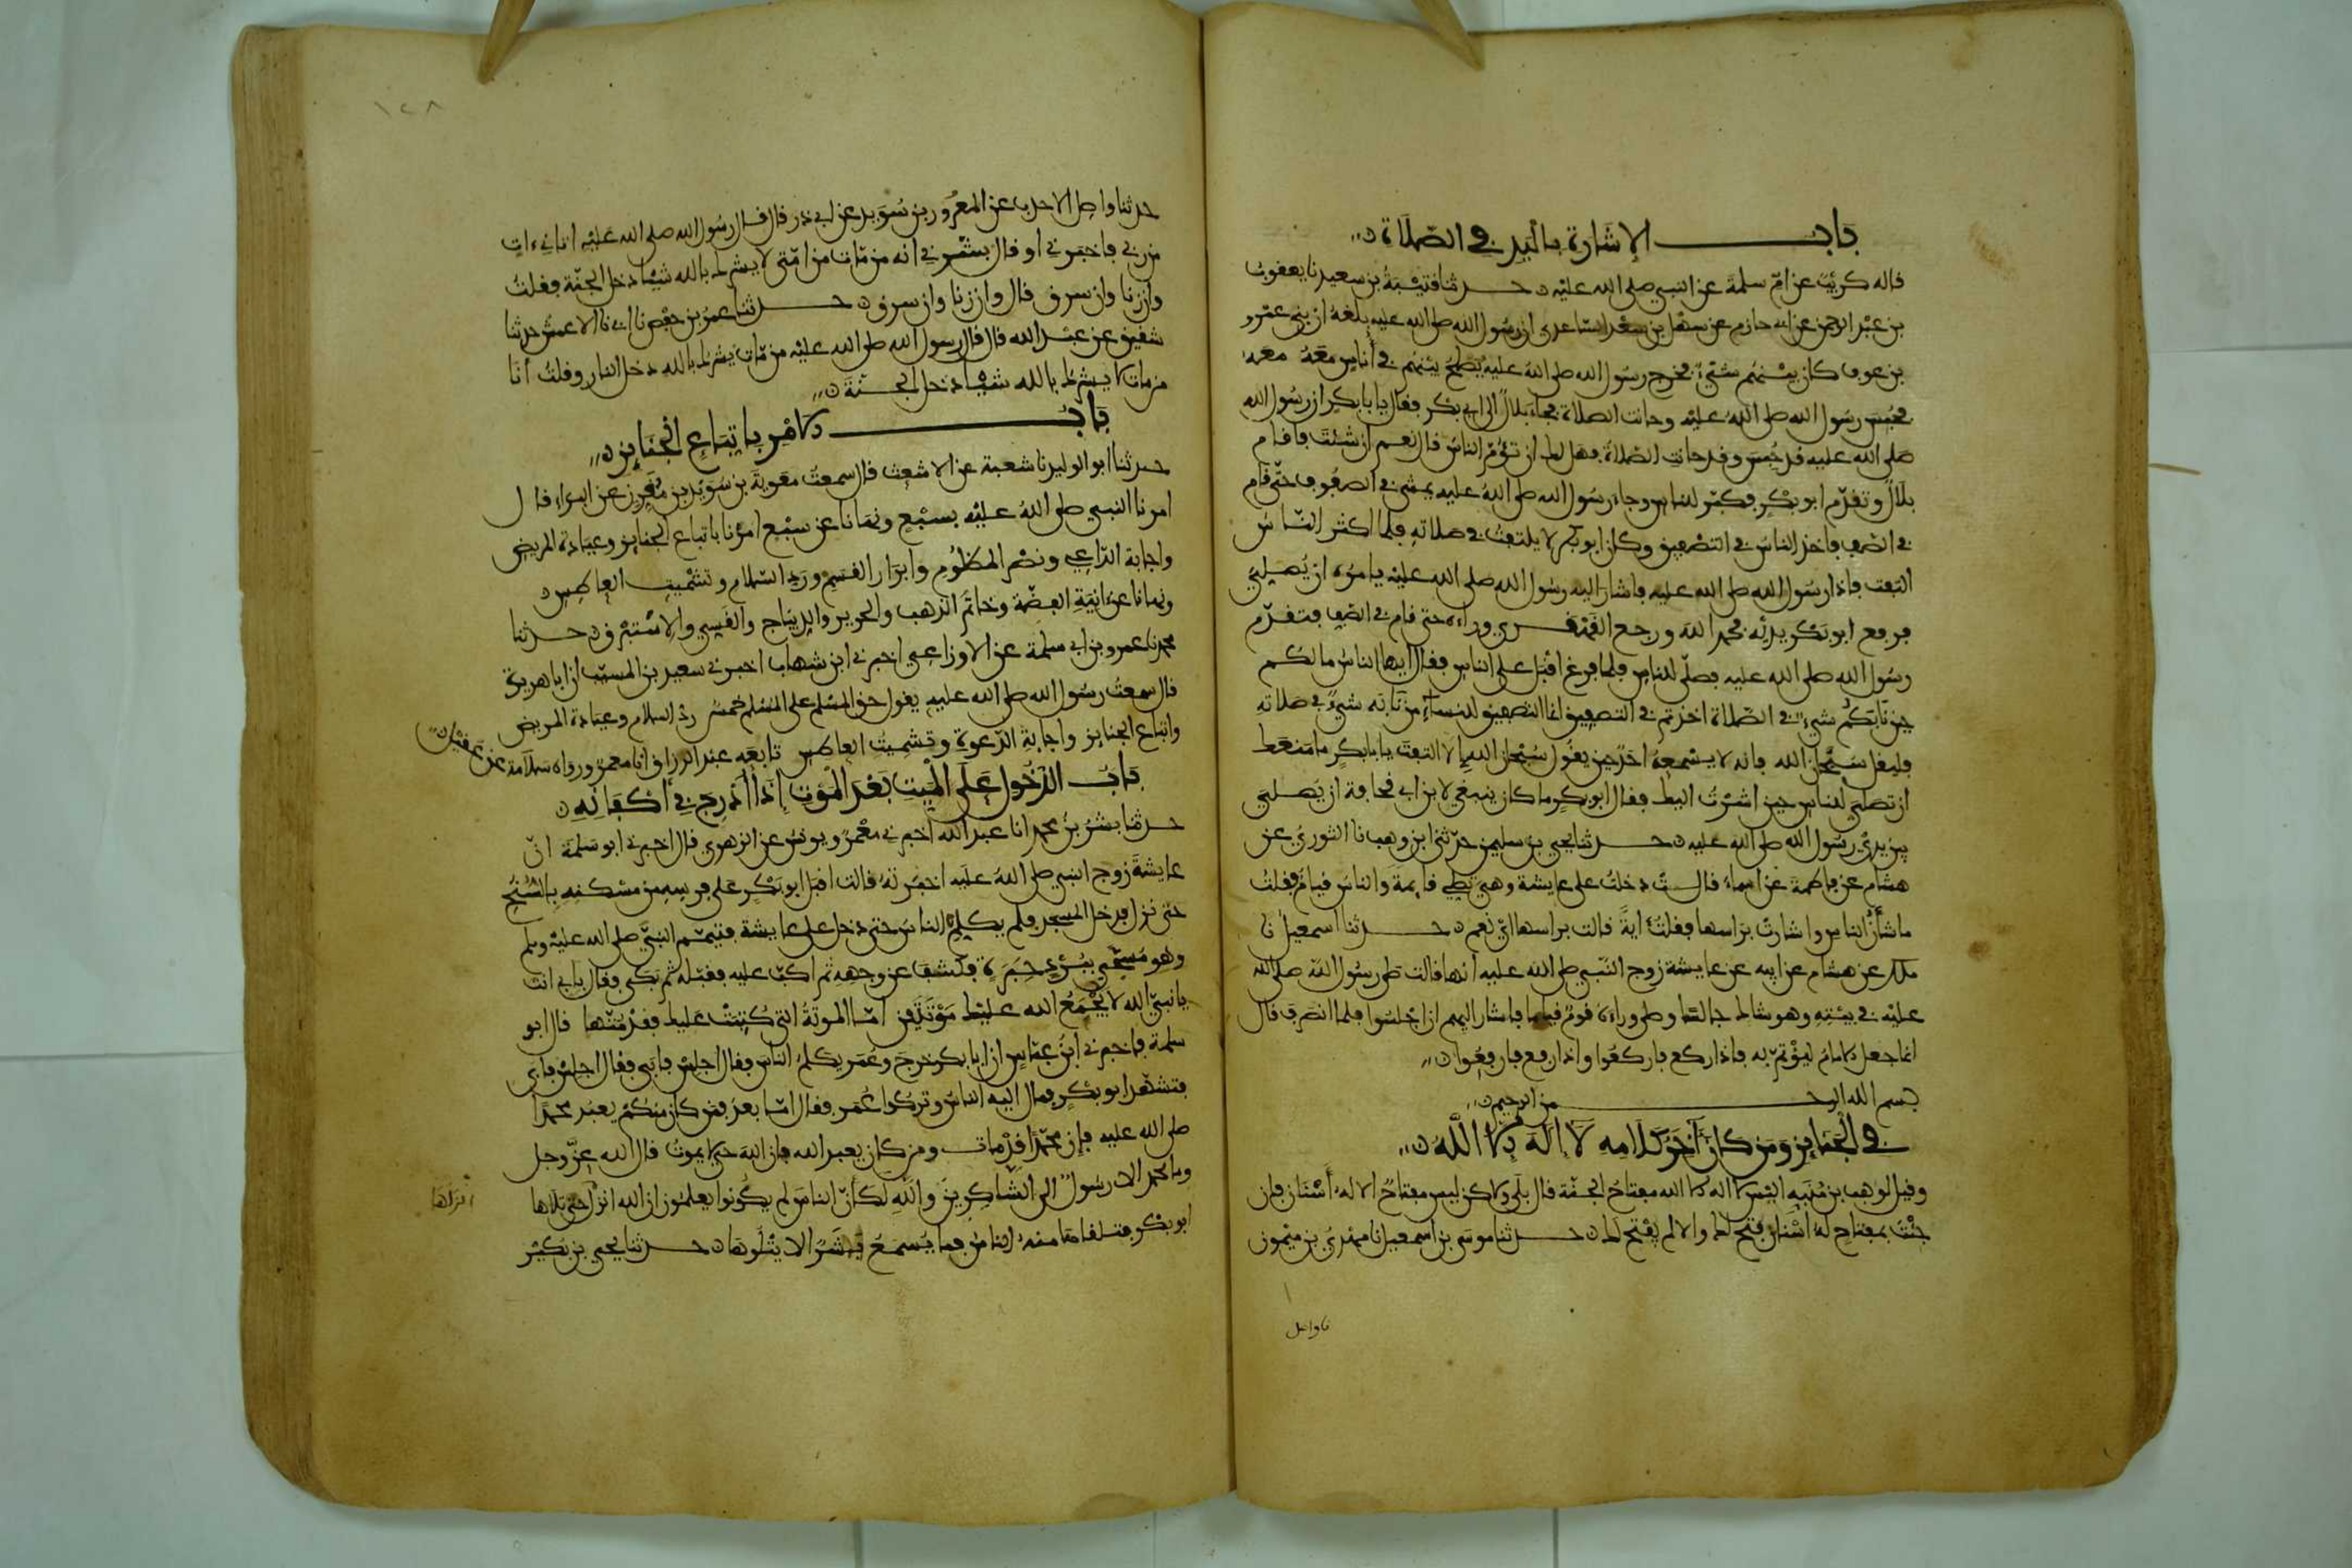 باب الإشارة باليد في الصلاة
قاله كريب عن ام سلمة عن النبي صلى الله عليه حدثنا قتيبة بن سعيد نا يعقوب
بن عبد الرحمن عن ابي حازم عن سهل بن سعد الساعدي ان رسول الله صلى الله عليه بلغه ان بني عمرو
بن عوف كان بينهم شيء فخرج رسول الله صلى الله عليه يصلح بينهم في أناس معه
فحبس رسول الله صلى الله عليه وحانت الصلاة فجاء بلال الى ابي بكر فقال يا با بكر ان رسول الله
صلى الله عليه قد حبس وقد حانت الصلاة فهل لك ان تؤم الناس قال نعم ان شئت فاقام
بلال وتقدم ابو بكر فكبر للناس وجاء رسول الله صلى الله عليه يمشي في الصفوف حتى قام
في الصف فاخذ الناس في التصفيق وكان ابو بكر لا يلتفت في صلاته فلما اكثر الناس
التفت فاذا رسول الله صلى الله عليه فاشار اليه رسول الله صلى الله عليه يامره ان يصلي
فرفع ابو بكر يديه فحمد الله ورجع القهقرى وراءه حتى قام في الصف فتقدم
رسول الله صلى الله عليه فصلى للناس فلما فرغ اقبل على الناس فقال ايها الناس ما لكم
حين نابكم شيء في الصلاة اخذتم في التصفيق انما التصفيق للنساء من نابه شيء في صلاته
فليقل سبحان الله فانه لا يسمعه احد حين يقول سبحان الله الا التفت يا با بكر ما منعك
ان تصلي للناس حين اشرت اليك فقال ابو بكر ما كان ينبغي لابن ابي قحافة ان يصلي
بين يدي رسول الله صلى الله عليه حدثنا يحيى بن سليمن حدثني ابن وهب نا الثوري عن
هشام عن فاطمة عن اسماء قالت دخلت على عايشة وهي تصلي قايمة والناس قيام فقلت
ما شأن الناس واشارت براسها فقلت اية قالت براسها اي نعم حدثنا اسمعيل نا
ملك عن هشام عن ابيه عن عايشة زوج النبي صلى الله عليه انها قالت صلى رسول الله صلى الله
عليه في بيته وهو شاك جالسا وصلى وراءه قوم قياما فاشار اليهم ان اجلسوا فلما انصرف قال
انما جعل الامام ليؤتم به فاذا ركع فاركعوا واذا رفع فارفعوا
بسم الله الرحمن الرحيم
في الجنايز ومن كان آخر كلامه لا اله الا الله
وقيل لوهب بن منبه اليس لا اله الا الله مفتاح الجنة قال بلى ولاكن ليس مفتاح الا له أسنان فان
جئت بمفتاح له اسنان فتح لك والا لم يفتح لك حدثنا موسى بن اسمعيل نا مهدي بن ميمون
نا واصل
١٢٨
حدثنا واصل الاحدب عن المعرور بن سويد عن ابي ذر قال قال رسول الله صلى الله عليه اتاني ءات
من ربي فاخبرني او قال بشرني انه من مات من امتي لا يشرك بالله شيئا دخل الجنة فقلت
وان زنا وان سرق قال وان زنا وان سرق حدثنا عمر بن حفص نا ابي نا الاعمش حدثنا
شقيق عن عبد الله قال قال رسول الله صلى الله عليه من مات يشرك بالله دخل النار وقلت أنا
من مات لا يشرك بالله شيئا دخل الجنة
باب الامر باتباع الجنايز
حدثنا ابو الوليد نا شعبة عن الاشعث قال سمعت معوية بن سويد بن مقرن عن البراء قال
امرنا النبي صلى الله عليه بسبع ونهانا عن سبع امرنا باتباع الجنايز وعيادة المريض
واجابة الداعي ونصر المظلوم وابرار القسم ورد السلام وتشميت العاطس
ونهانا عن ءانية الفضة وخاتم الذهب والحرير والديباج والقسي والاستبرق حدثنا
محمد نا عمرو بن ابي سلمة عن الاوزاعي اخبرني ابن شهاب اخبرني سعيد بن المسيب ان ابا هريرة
قال سمعت رسول الله صلى الله عليه يقول حق المسلم على المسلم خمس رد السلام وعيادة المريض
واتباع الجنايز واجابة الدعوة وتشميت العاطس تابعه عبد الرزاق انا معمر ورواه سلامة عن عقيل
باب الدخول على الميت بعد الموت إذا أدرج في أكفانه
حدثنا بشر بن محمد انا عبد الله اخبرني معمر ويونس عن الزهري قال اخبرني ابو سلمة ان
عايشة زوج النبي صلى الله عليه اخبرته قالت اقبل ابو بكر على فرسه من مسكنه بالسنح
حتى نزل فدخل المسجد فلم يكلم الناس حتى دخل على عايشة فتيمم النبي صلى الله عليه وسلم
وهو مسجى ببرد حبرة فكشف عن وجهه ثم اكب عليه فقبله ثم بكى فقال بابي انت
يا نبي الله لا يجمع الله عليك موتتين اما الموتة التي كتبت عليك فقد متها قال ابو
سلمة فاخبرني ابن عباس ان ابا بكر خرج وعمر يكلم الناس فقال اجلس فابى فقال اجلس فابى
فتشهد ابو بكر فمال اليه الناس وتركوا عمر فقال اما بعد فمن كان منكم يعبد محمدا
صلى الله عليه فإن محمدا قد مات ومن كان يعبد الله فان الله حي لا يموت قال الله عز وجل
وما محمد الا رسول الى الشاكرين والله لكأن الناس لم يكونوا يعلمون ان الله انزل حتى تلاها
انزلها
ابو بكر فتلقاها منه الناس فما يسمع بشر الا يتلوها حدثنا يحيى بن بكير